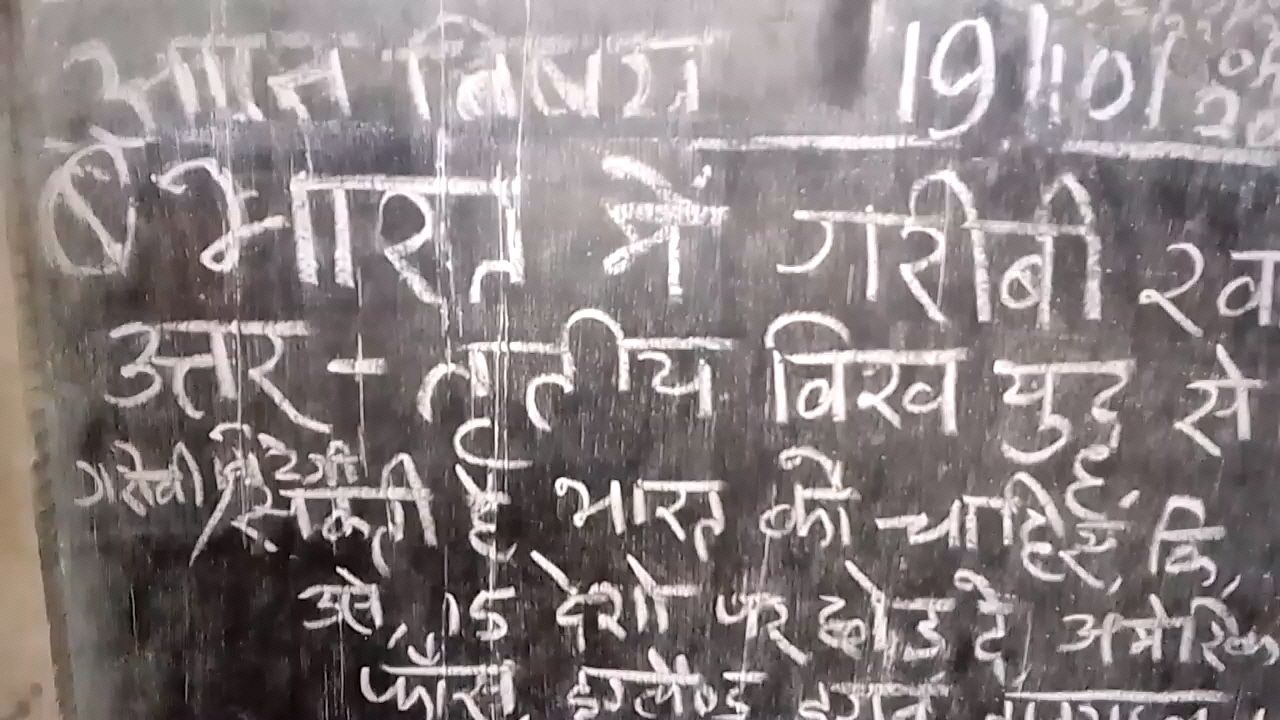 आम विषय 19/10/
① भारत में गरीबी
उत्तर - तृतीय विश्व युद्ध से
गरीबी मिटेगी / सकती है भारत को चाहिए, कि,
उसे, 15 देशो पर छोड़ दे, अमेरिका
फ्रांस, इंग्लैण्ड